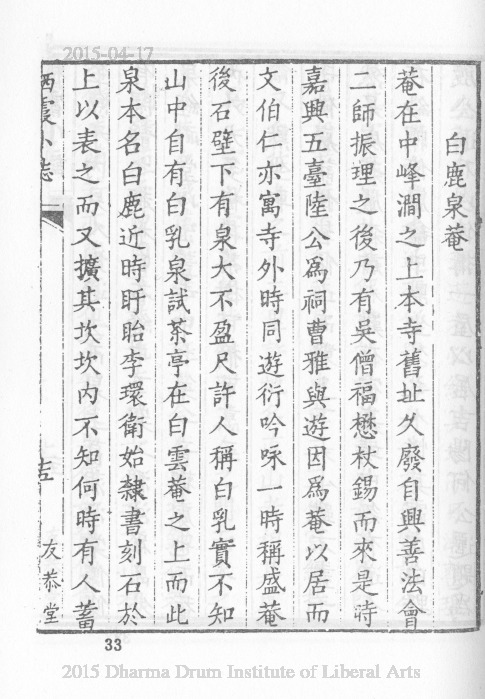 2015-04-17
白鹿泉菴
菴在中峰澗之上本寺舊址久廢自興善法會
二師振理之後乃有吳僧福懋杖錫而來是時
嘉興五臺陸公爲祠曹雅與遊因爲菴以居而
文伯仁亦寓寺外時同遊衍吟咏一時稱盛菴
後石壁下有泉大不盈尺許人稱白乳實不知
山中自有白乳泉試茶亭在白雲菴之上而此
泉本名白鹿近時盱眙李環衛始隸書刻石於
上以表之而又擴其坎坎内不知何時有人蓄
栖霞小志
友恭堂
33
2015 Dharma Drum Institute of Liberal Arts